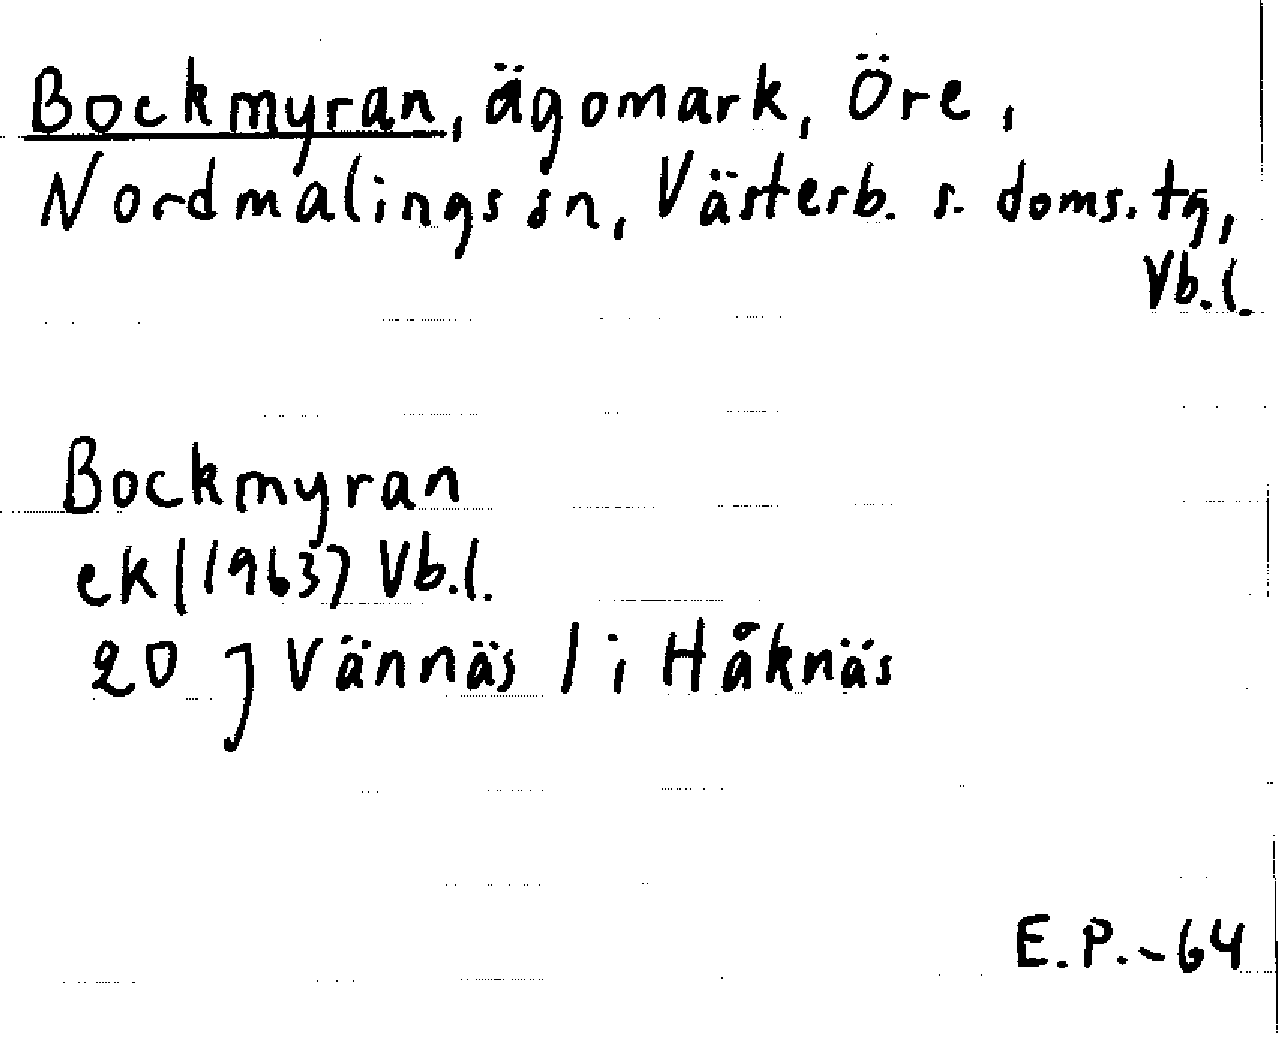 Bockmyran, ägomark, Öre,
Nordmalings sn, Västerb. s. doms. tg,
Vb.l.
Bockmyran
ek (1963) Vb.l.
20 J Vännäs / i Håknäs
E.P.-64